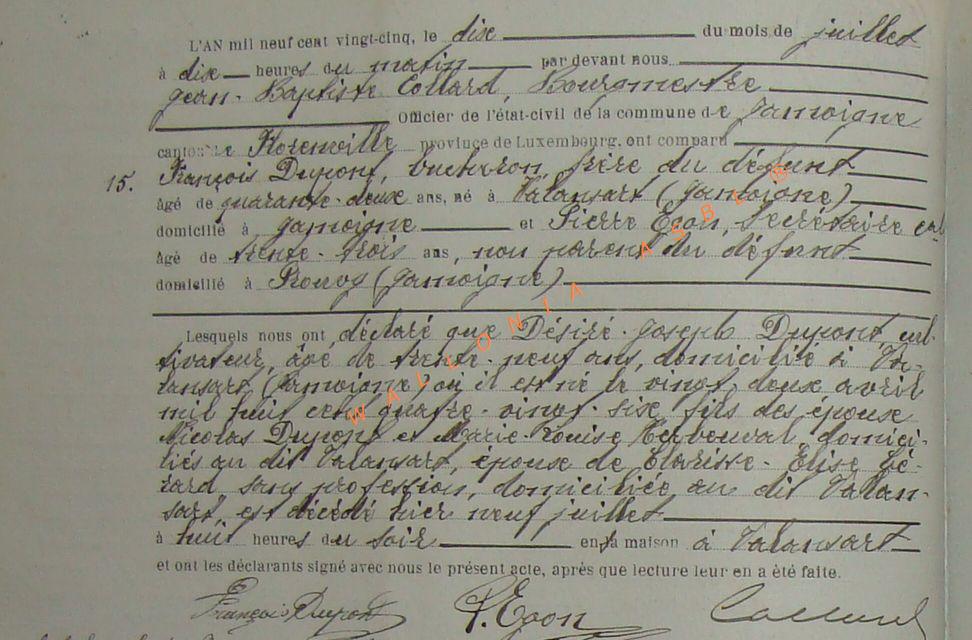 L'AN mil neuf cent vingt-cinq, le dix du mois de juillet
à dix heures du matin par devant nous
Jean-Baptiste Collard, Bourgmestre
Officier de l'état-civil de la commune de Jamoigne
canton de Florenville province de Luxembourg, ont comparu
15. François Dupont, bucheron, frère du défunt
âgé de quarante-deux ans, né à Valansart (Jamoigne)
domicilié à Jamoigne et Pierre Egon, Secrétaire cal
âgé de trente-trois ans, non parent du défunt
domicilié à Prouvy (Jamoigne)
Lesquels nous ont déclaré que Désiré-Joseph Dupont, cul-
tivateur, âgé de trente-neuf ans, domicilié à Va-
lansart, (Jamoigne) où il est né le vingt-deux avril
mil huit cent quatre-vingt-six, fils des époux
Nicolas Dupont et Marie-Louise Herbeuval, domici-
liés au dit Valansart, époux de Clarisse-Elise Gé-
rard, sans profession, domiciliée au dit Valan-
sart, est décédé hier neuf juillet
à huit heures du soir en sa maison à Valansart
et ont les déclarants signé avec nous le présent acte, après que lecture leur en a été faite.
François Dupont P. Egon Collard
WALLONIA ASBL ®